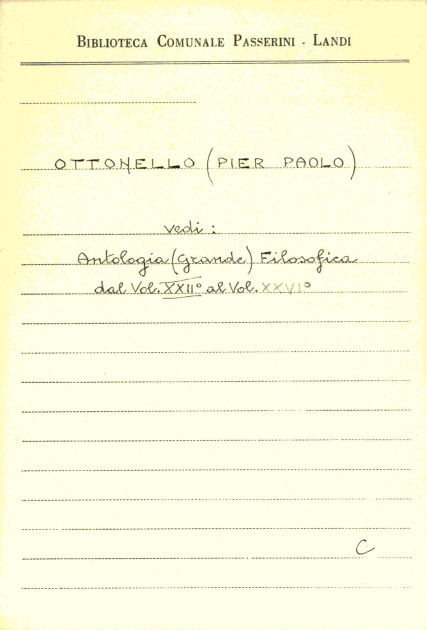 BIBLIOTECA COMUNALE PASSERINI - LANDI
OTTONELLO (PIER PAOLO)
vedi:
Antologia (Grande) Filosofica
dal Vol. XXII° al Vol. XXVI°
C